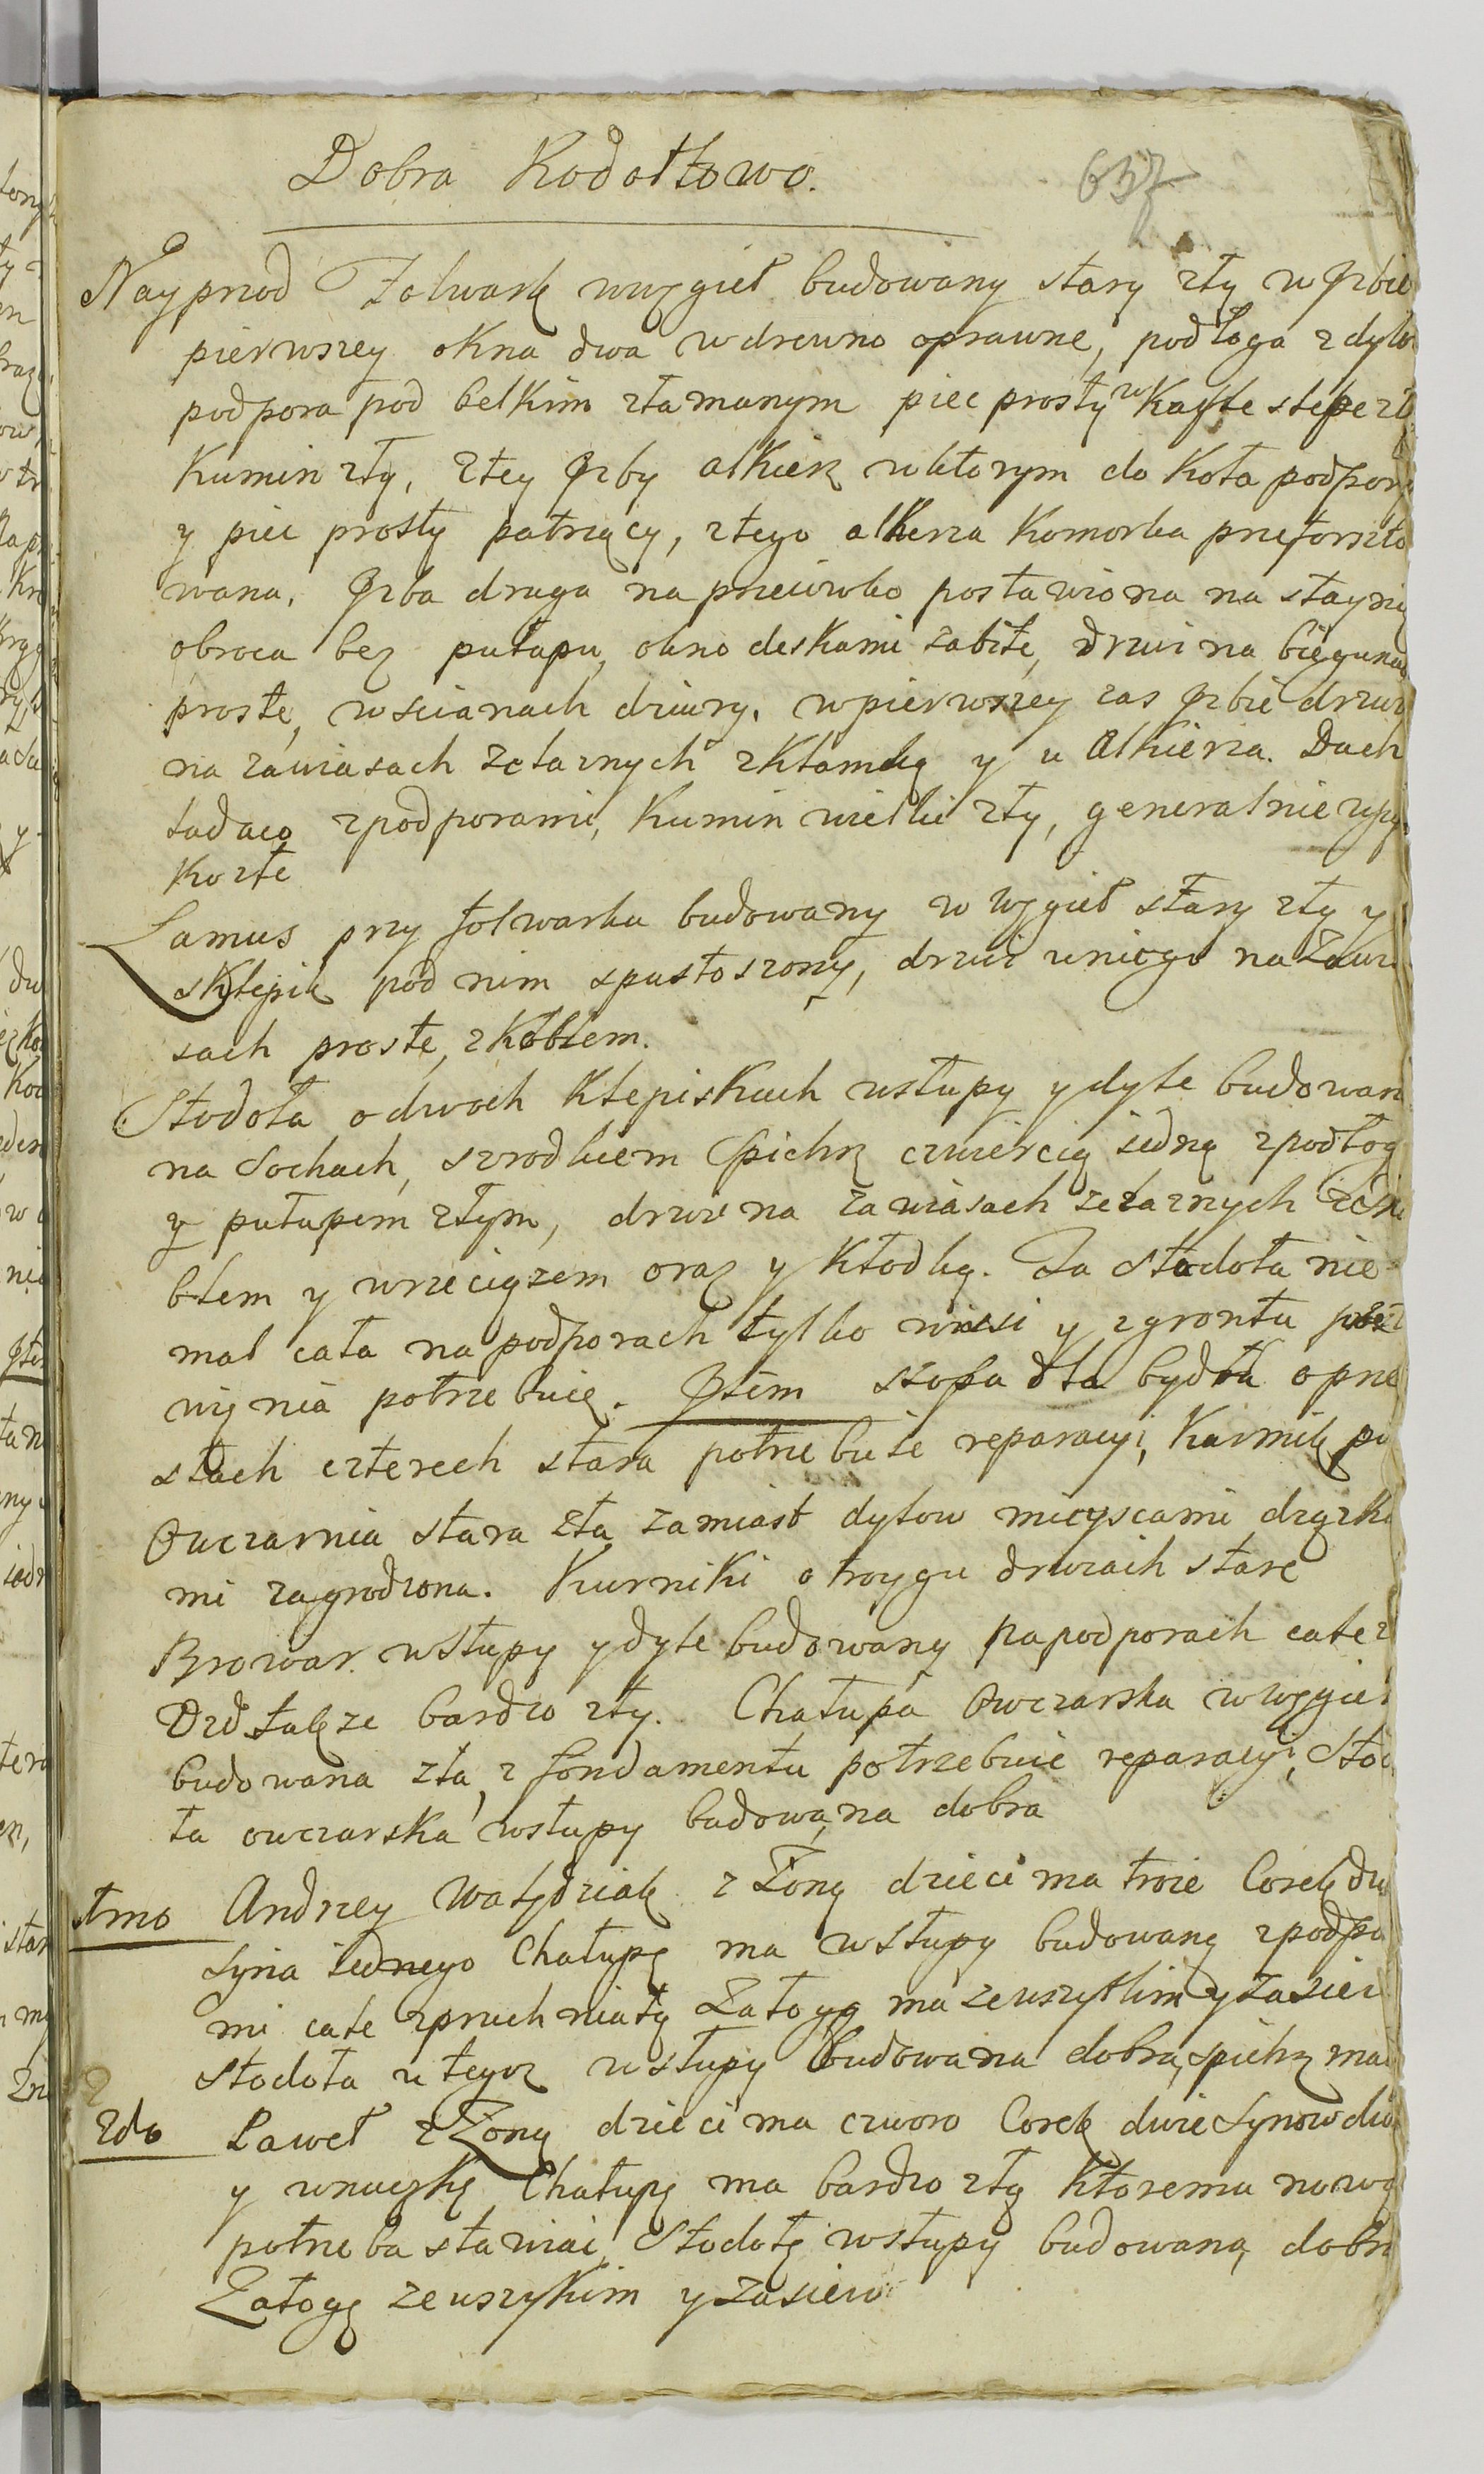 Dobra Kodołtowo.
637
Nayprzod Folwark wwęgieł budowany stary zły w Jzbie
pierwszey okna dwa wdrewno oprawne, podłoga z dylo
podpora pod belkim złamanym piec prosty w Kafle slepe zł
Kumin zły, Ztey Jzby alkierz wktorym do Koła podpory
y piec prosty patrzący, ztego alkierza Komorka przeforszto
wana, Jzba druga naprzeciwko postawiona na staynią
obroca bez pułapu, okno deskami zabite, drzwi na biegunach
proste, wscianach dziury. wpierwszey zas Jzbie drzwi
na zawiasach zelaznych zKlamką y u Alkierza. Dach
ladaco zpodporami, Kumin wielki zły, generalnie
Ko złe
Lamus przy folwarku budowany w węgieł stary zły y
sklepik pod nim spustoszony, drzwi uniego na Zawia
sach proste, zKoblem.
Stodoła o dwoch Klepiskach wslupy ydyle budowan
na Sochach, szrodkiem Spichrz czwiercią iedną zpodłog
y pułapem złym, drzwi na zawiasach zelaznych zesko
blem y wrzeciązem oraz y Kłodką. Ta Stodoła nie
mal cała na podporach tylko wisi y zgrontu
wynia potrzebuie. Jtem szopa dla bydła oprzę
słach czterech stara potrzebuie reparacyi, Karmik po
Owczarnia stara zła, zamiast dylow mieyscami drązka
mi zagrodzona. Kurniki o troygu drzwiach stare
Browar wSłupy ydyle budowany na podporach całe z
Ozd takze bardzo zły. Chałupa Owczarska wwęgieł
budowana zła, z fondamentu potrzebuie reparacyi, Stod
ła owczarska wsłupy budowana dobra
1mo Andrzey Watędziak z Zoną dzieci ma troie Corek dw
Syna iednego Chałupę ma wsłupy budowaną zpodpo
mi całe zpruchniałą Załogę ma zewszytkim yZasiew
Stodoła u tegoz wsłupy budowana dobra, spichrz ma
2do Paweł zZoną dzieci ma czworo Corek dwie Synow dw
y wnuczkę Chałupę ma bardzo złą Ktoremu nową
potrzeba stawiac, Stodołę wsłupy budowaną dobrą
Załogę zewszytkim y zasiew